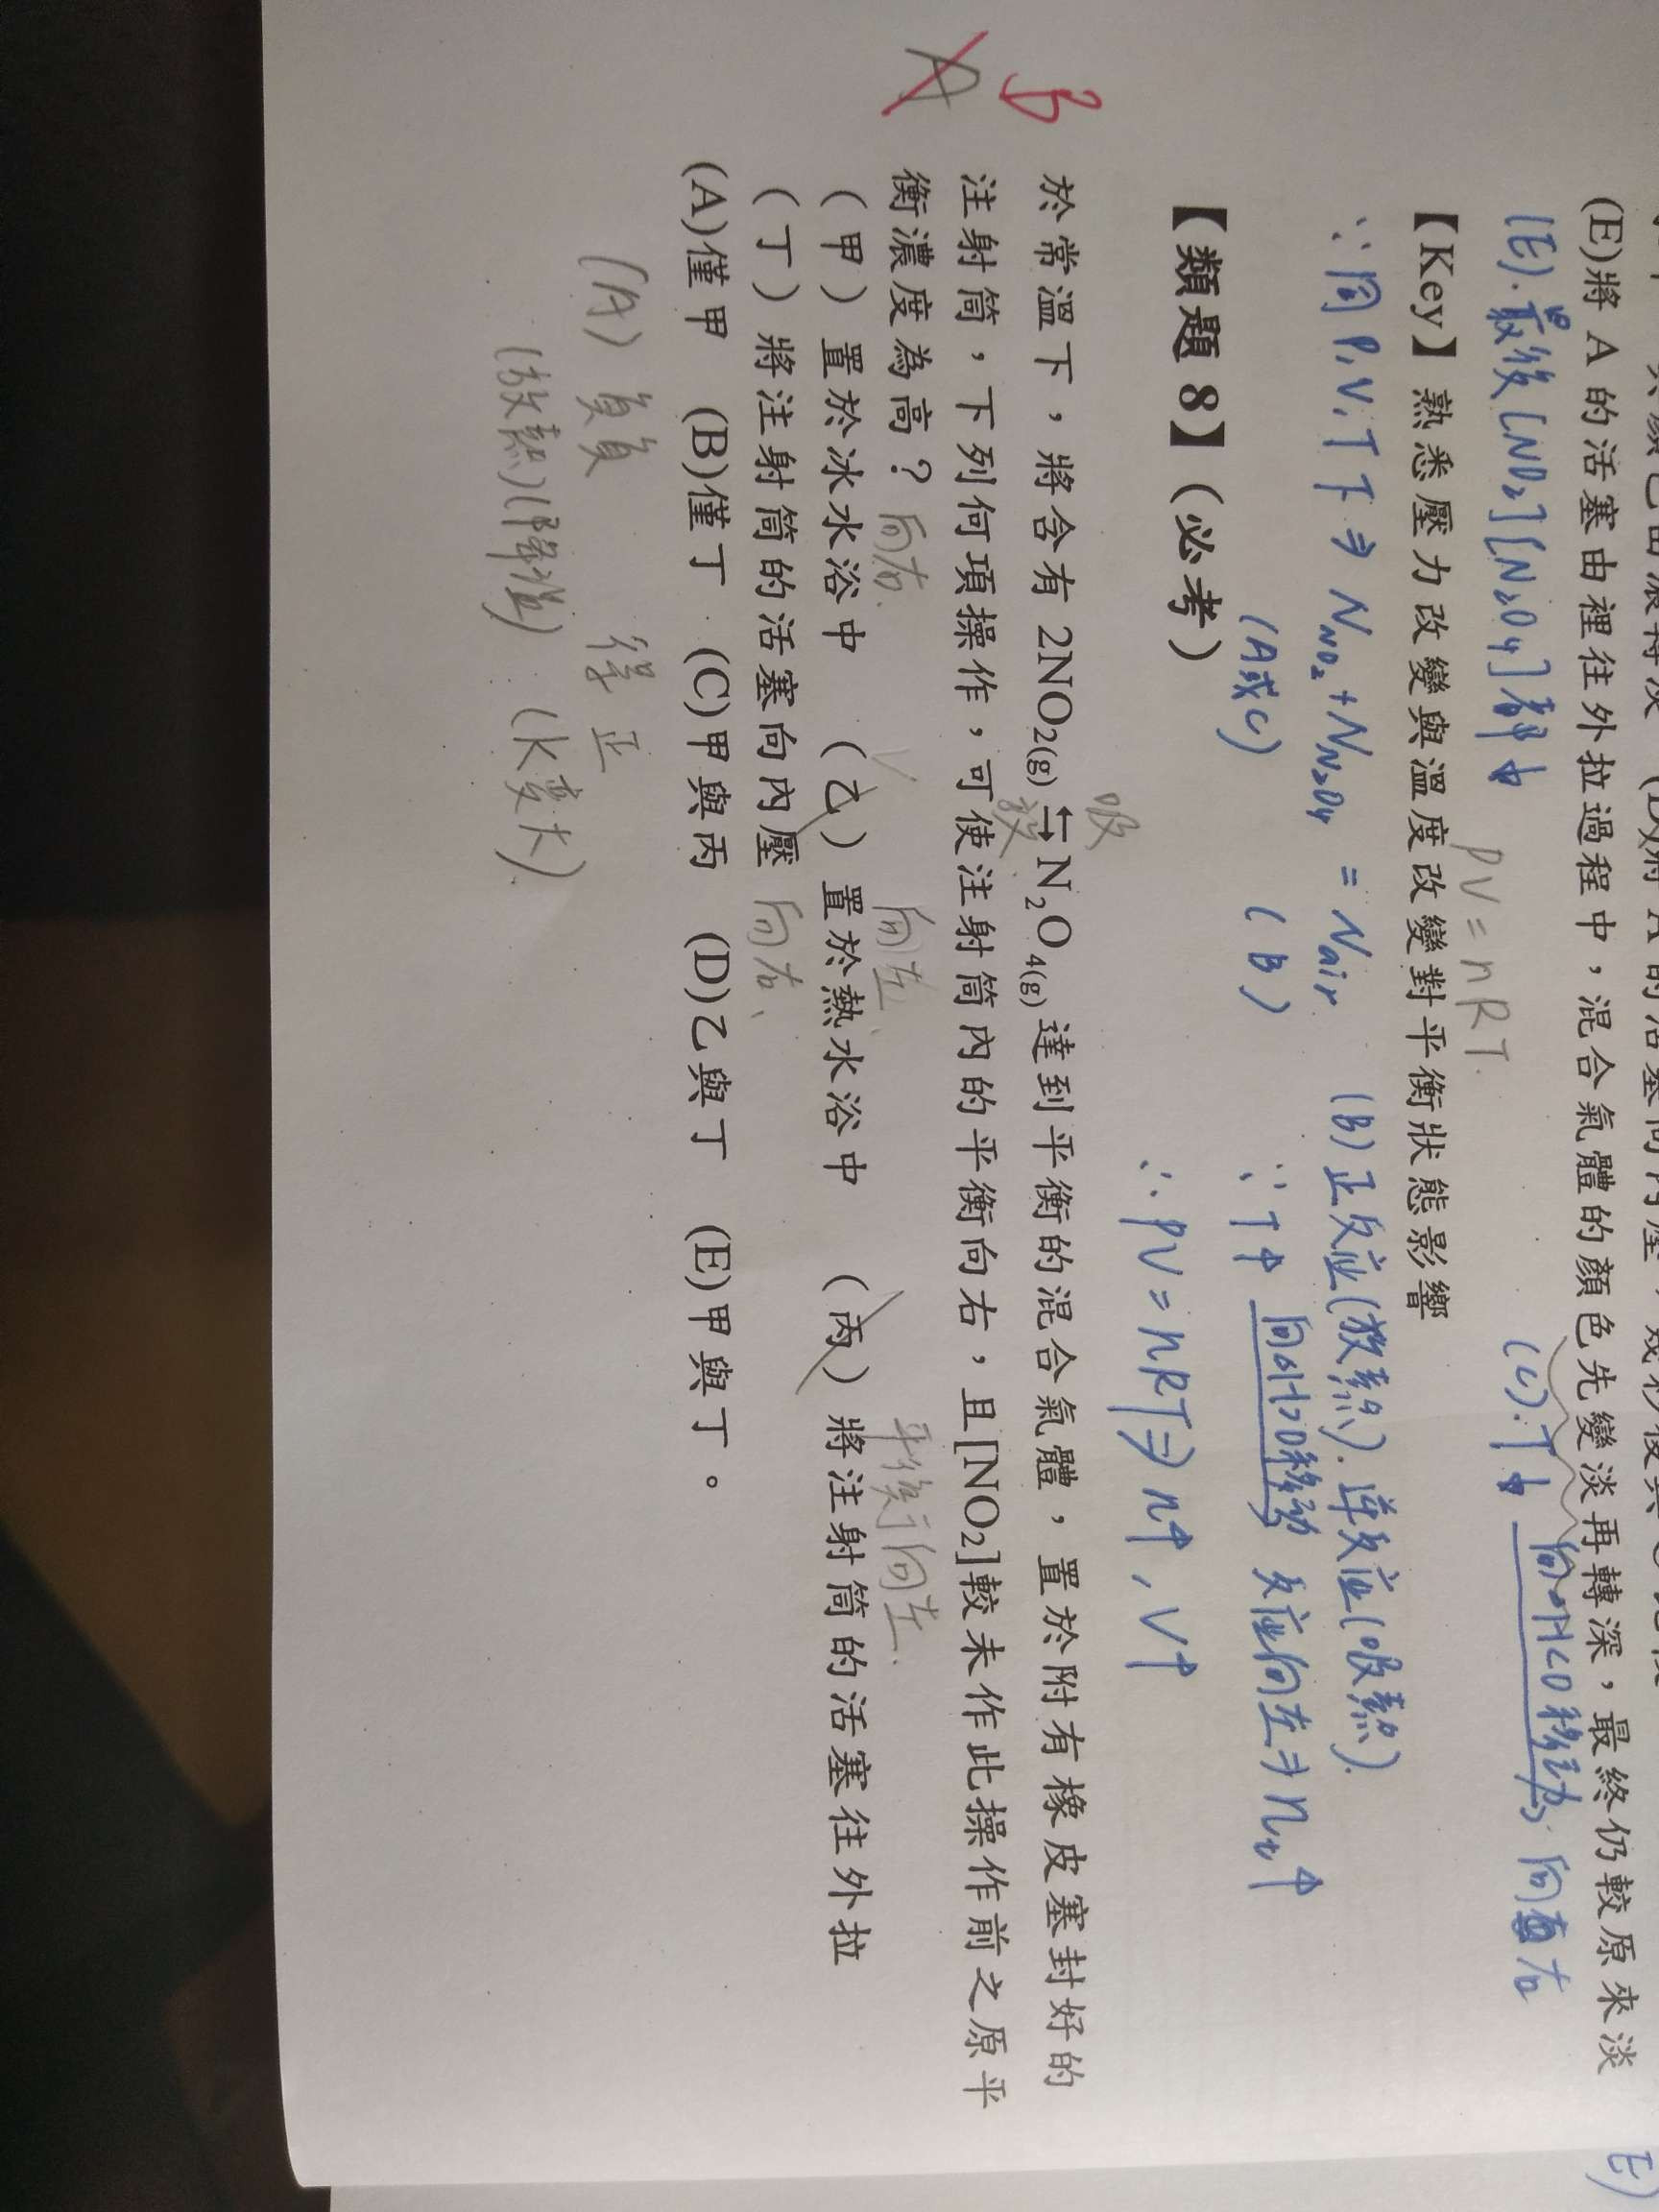 (E)將 A 的活塞由裡往外拉過程中，混合氣體的顏色先變淡再轉深，最終仍較原來淡
(E).最後[NO₂][N₂O₄]都↓
(C).T↓ 向△H<0移動 向右
【Key】熟悉壓力改變與溫度改變對平衡狀態影響
PV=nRT.
∵同P,V,T下⇒NNO₂+NN₂O₄ = Nair
(A或C) (B)
(B)正反应(放熱).逆反应(吸熱).
∵T↑ 向△H>0移動 反应向左⇒n↑
∴PV=nRT⇒n↑,V↑
【類題 8】(必考)
B
A
吸
放
於常溫下，將含有 2NO₂(g)⇄N₂O₄(g)達到平衡的混合氣體，置於附有橡皮塞封好的
注射筒，下列何項操作，可使注射筒內的平衡向右，且[NO₂]較未作此操作前之原平
衡濃度為高？
向右. 向左、 平衡向左.
（甲）置於冰水浴中 （乙）置於熱水浴中 （丙）將注射筒的活塞往外拉
（丁）將注射筒的活塞向內壓 向右、
(A)僅甲 (B)僅丁 (C)甲與丙 (D)乙與丁 (E)甲與丁。
(A) 負負 得 正
(放熱)(降溫) (K變大).